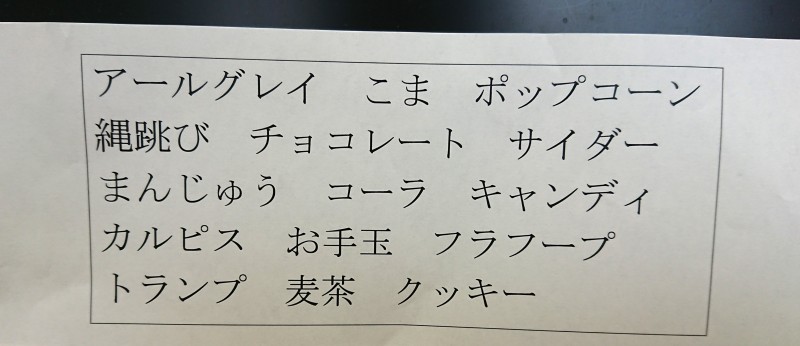 アールグレイ　こま　ポップコーン
縄跳び　チョコレート　サイダー
まんじゅう　コーラ　キャンディ
カルピス　お手玉　フラフープ
トランプ　麦茶　クッキー